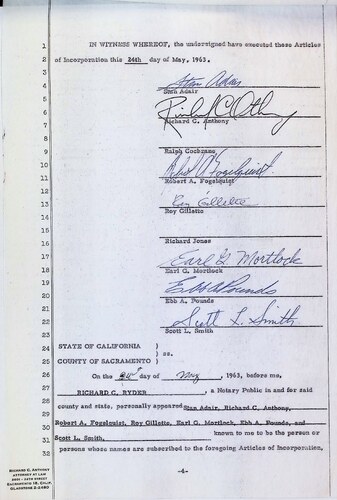 1 IN WITNESS WHEREOF, the undersigned have executed these Articles
2 of Incorporation this 24th day of May, 1963.
3
4 Stan Adair
5 Stan Adair
6 Richard C. Anthony
7 Richard C. Anthony
8
9 Ralph Cochrane
10 Robert A. Fogelquist
11 Robert A. Fogelquist
12
13 Roy Gillette
Roy Gillette
14
15
16 Richard Jones
17 Earl G. Mortlock
18 Earl G. Mortlock
19 Ebb A. Pounds
20
21 Ebb A. Pounds
22 Scott L. Smith
23 Scott L. Smith
24 STATE OF CALIFORNIA )
) ss.
25 COUNTY OF SACRAMENTO )
26 On the 24th day of May, 1963, before me,
27 RICHARD C. RYDER, a Notary Public in and for said
28 county and state, personally appeared Stan Adair, Richard C. Anthony,
29
30 Robert A. Fogelquist, Roy Gillette, Earl G. Mortlock, Ebb A. Pounds, and
31 Scott L. Smith, known to me to be the person or
32 persons whose names are subscribed to the foregoing Articles of Incorporation.
RICHARD C. ANTHONY
ATTORNEY AT LAW
SACRAMENTO 18, CALIF.
GLADSTONE 2-2480
-4-